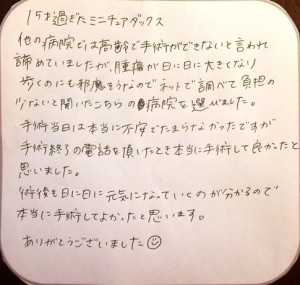 15才過ぎたミニチュアダックス
他の病院では高齢で手術ができないと言われ
諦めていましたが、腫瘍が日に日に大きくなり
歩くのにも邪魔そうなのでネットで調べて負担の
少ないと聞いたこちらの病院を選びました。
手術当日は本当に不安でたまらなかったですが
手術終了の電話を頂いたとき本当に手術して良かったと
思いました。
術後も日に日に元気になっていくのが分かるので
本当に手術してよかったと思います。
ありがとうございました